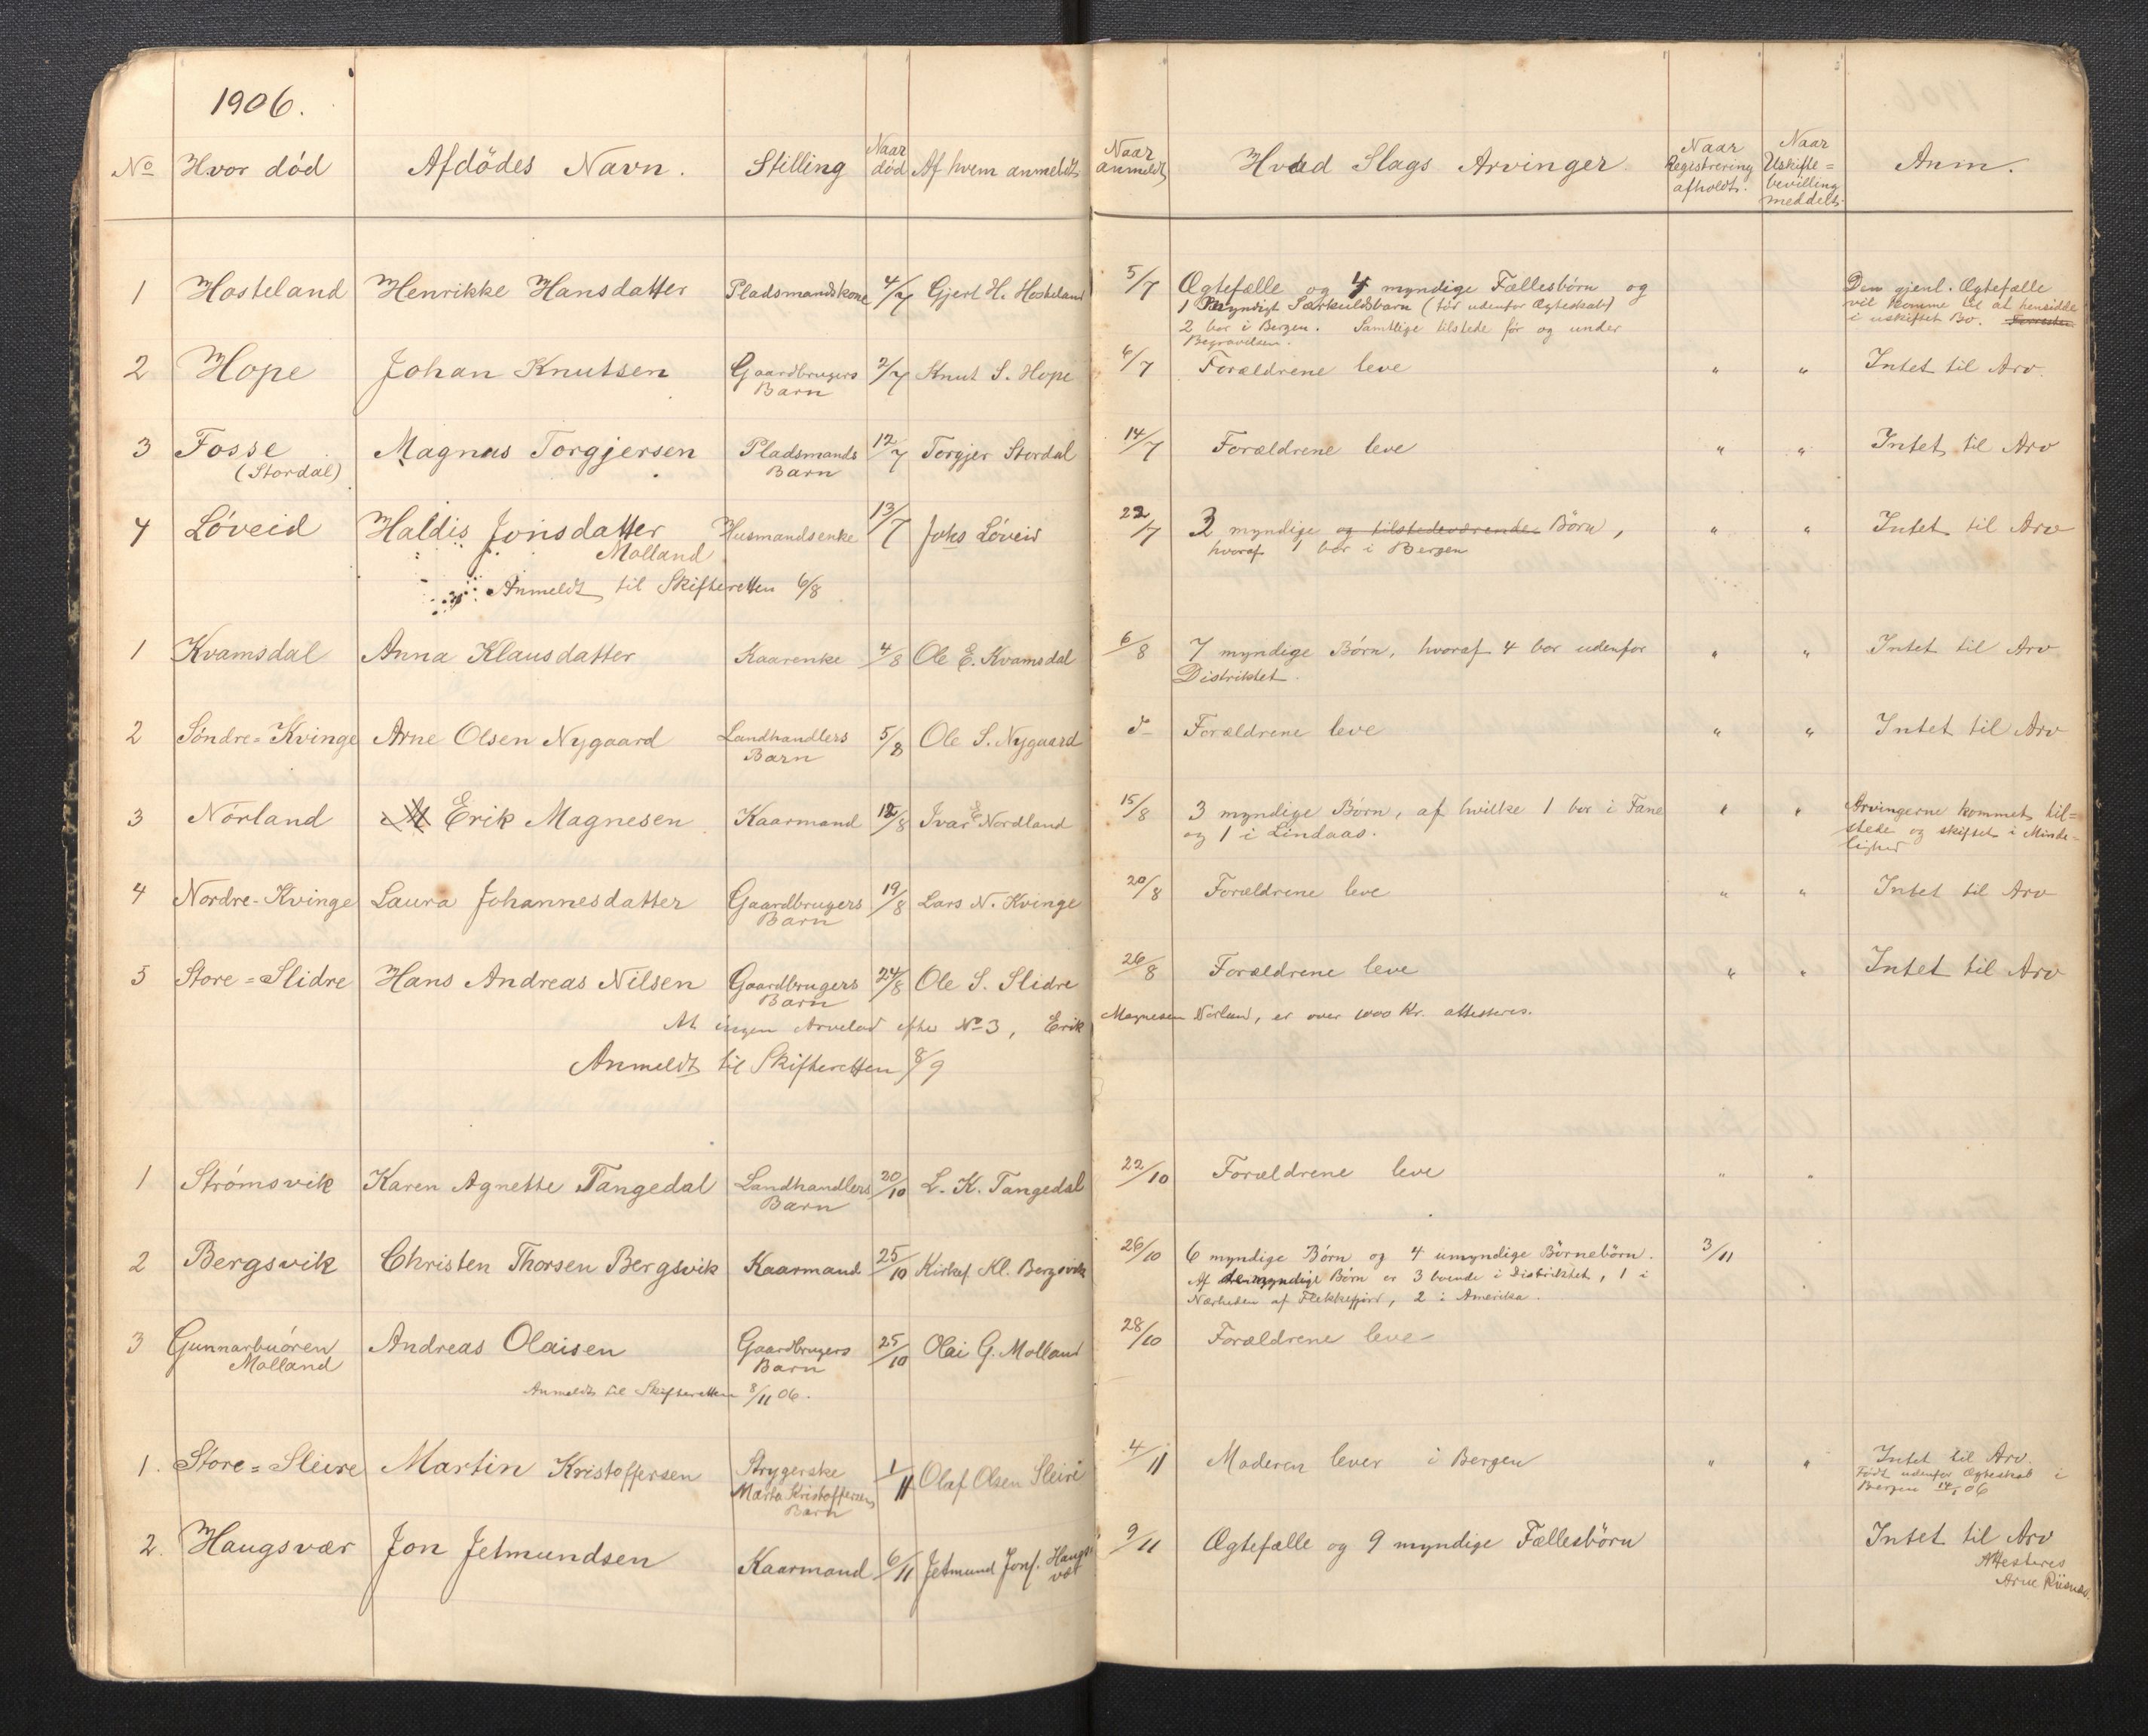 1906.
No Hvor död Afdödes Navn. Stilling Naar död Af hvem anmeldt Naar anmeldt Hvad Slags Arvinger Naar Registrering afholdt. Naar Uskifte= bevilling meddelt. Anm.
1 Hosteland Henrikke Hansdatter Pladsmandskone 4/7 Gjert H. Hosteland 5/7 Ægtefælle og 4 myndige Fællesbörn og Den gjenl. Ægtefælle
1 myndigt Særkuldsbarn (før udenfor Ægteskab) vil komme til at hensidde
2 bor i Bergen. Samtlige tilstede før og under i uskiftet Bo.
Begravelsen.
2 Hope Johan Knutsen Gaardbrugers 2/7 Knut S. Hope 6/7 Forældrene leve " " Intet til Arv.
Barn
3 Fosse Magnus Torgjersen Pladsmands 12/7 Torgjer Stordal 14/7 Forældrene leve " " Intet til Arv
(Stordal) Barn
4 Löveid Haldis Jonsdatter Husmandsenke 13/7 Johs Löveid 22/7 3 myndige og tilstedeværende Börn, " " Intet til Arv
Molland hvoraf 1 bor i Bergen
Anmeldt til Skifteretten 6/8
1 Kvamsdal Anna Klausdatter Kaarenke 4/8 Ole E. Kvamsdal 6/8 7 myndige Börn, hvoraf 4 bor udenfor " " Intet til Arv
Distriktet.
2 Söndre=Kvinge Arne Olsen Nygaard Landhandlers 5/8 Ole S. Nygaard do Forældrene leve " " Intet til Arv
Barn
3 Nörland Erik Magnesen Kaarmand 12/8 Ivar E Nordland 15/8 3 myndige Börn, af hvilke 1 bor i Fane " " Arvingerne kommet til=
og 1 i Lindaas. stede og skiftet i Minde-
lighed
4 Nordre-Kvinge Laura Johannesdatter Gaardbrugers 19/8 Lars N. Kvinge 20/8 Forældrene leve " " Intet til Arv
Barn
5 Store=Slidre Hans Andreas Nilsen Gaardbrugers 24/8 Ole S. Slidre 26/8 Forældrene leve " " Intet til Arv
Barn
At ingen Arvelod efter No 3, Erik Magnesen Norland, er over 1000 Kr. attesteres.
Anmeldt til Skifteretten 8/9
1 Strömsvik Karen Agnette Tangedal Landhandlers 20/10 L. K. Tangedal 22/10 Forældrene leve " "
Barn
2 Bergsvik Christen Thorsen Bergsvik Kaarmand 25/10 Kl. Bergsvik 26/10 6 myndige Börn og 4 umyndige Börnebörn. 3/11
Af de myndige Börn er 3 boende i Distriktet, 1 i
Nærheden af Flekkefjord, 2 i Amerika.
3 Gunnarbuören Andreas Olaisen Gaardbrugers 25/10 Olai G. Molland 28/10 Forældrene leve
Molland Barn
Anmeldt til Skifteretten 8/11 06.
1. Store=Sleire Martin Kristoffersen Strygerske 1/11 Olaf Olsen Sleire 4/11 Moderen lever i Bergen " " Intet til Arv.
Marta Kristoffersens Født udenfor Ægteskab i
Barn Bergen 06
2. Haugsvær Jon Jetmundsen Kaarmand 6/11 Jetmund Jons. Haugs- 9/11 Ægtefælle og 9 myndige Fællesbörn Intet til Arv
vær Attesteres
Arne Riisnæs.